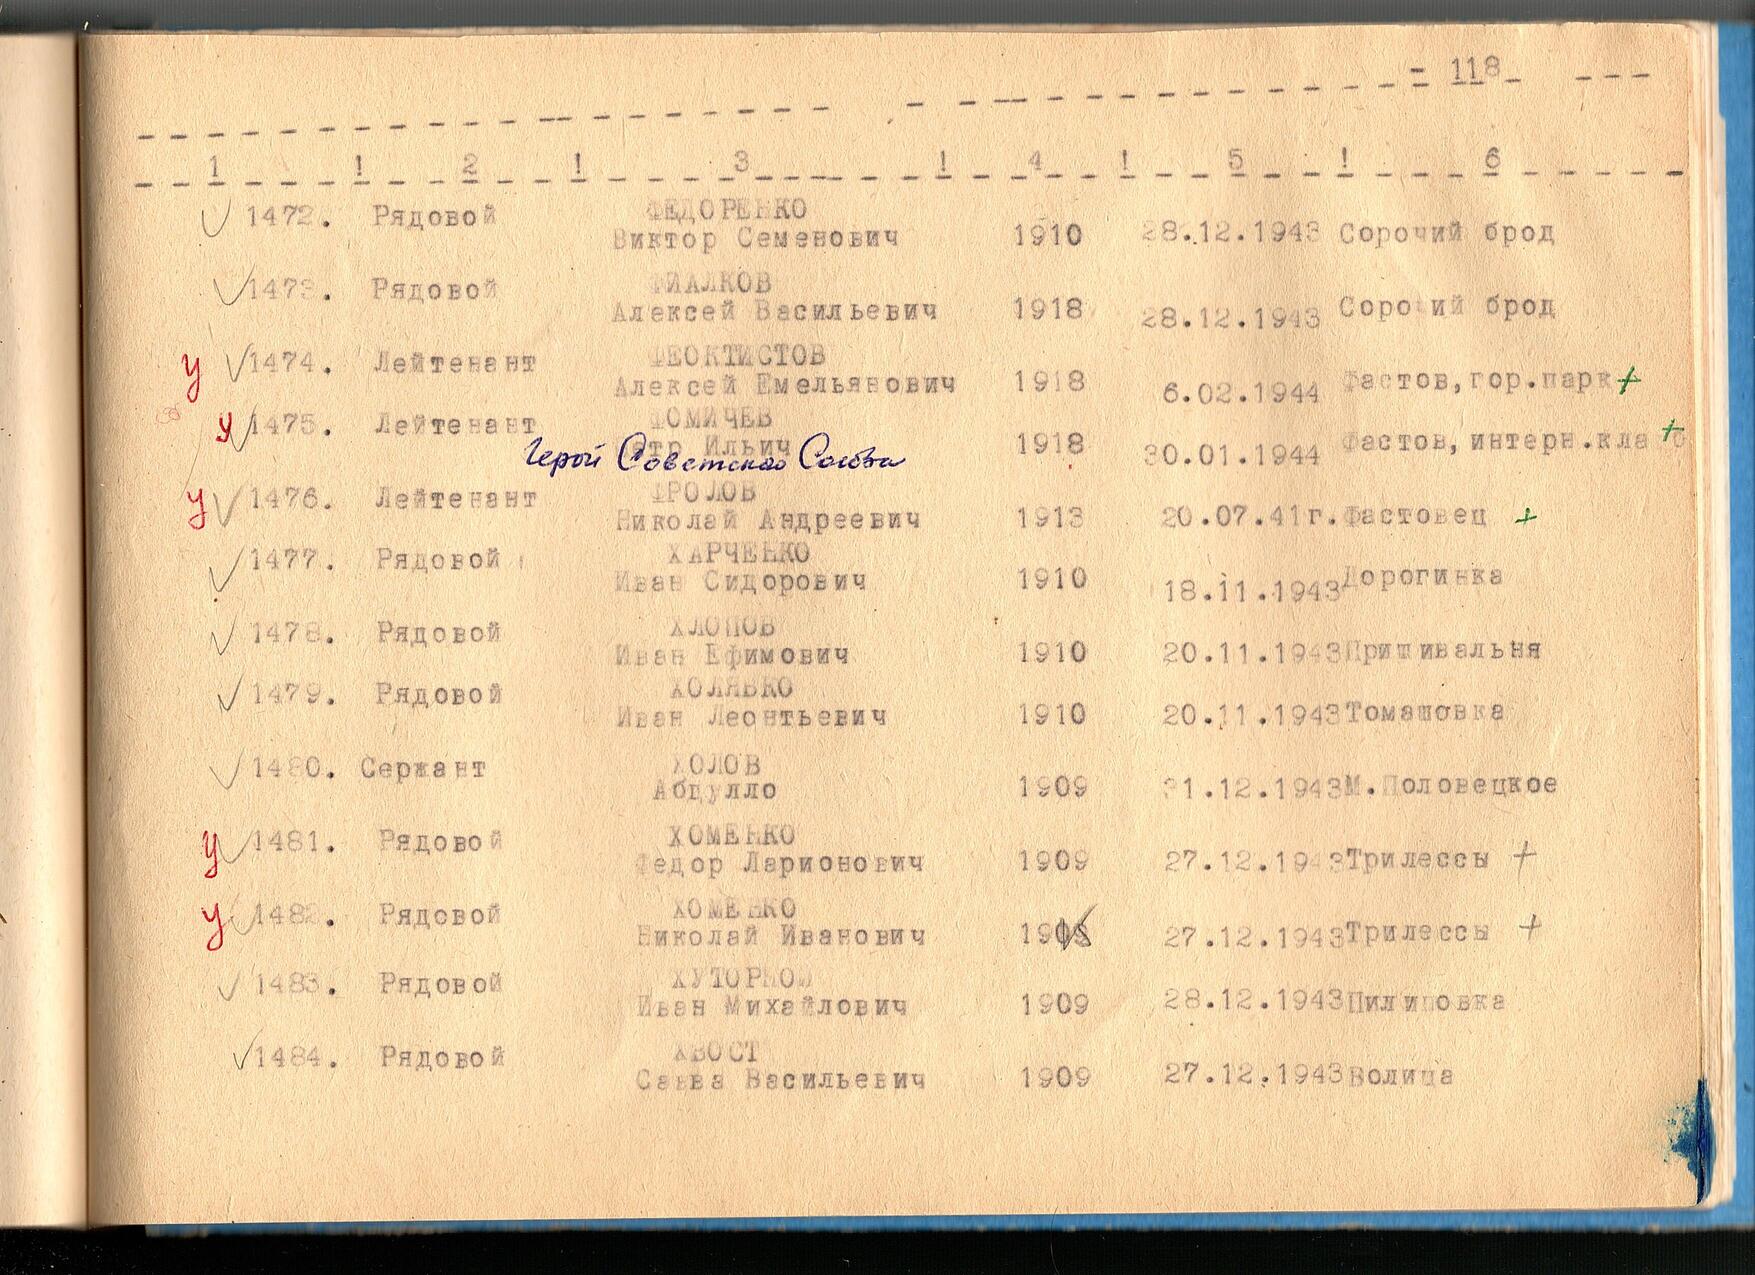 - 118 -
1 ! 2 ! 3 ! 4 ! 5 ! 6
1472. Рядовой ФЕДОРЕНКО
Виктор Семенович 1910 28.12.1943 Сорочий брод
1473. Рядовой ФИАЛКОВ
Алексей Васильевич 1918 28.12.1943 Сорочий брод
У 1474. Лейтенант ФЕОКТИСТОВ
Алексей Емельянович 1918 6.02.1944 Фастов,гор.парк +
У 1475. Лейтенант ФОМИЧЕВ
Петр Ильич 1918 30.01.1944 Фастов,интерн.кла +
Герой Советского Союза
У 1476. Лейтенант ФРОЛОВ
Николай Андреевич 1913 20.07.41г. Фастовец +
1477. Рядовой ХАРЧЕНКО
Иван Сидорович 1910 18.11.1943 Дорогинка
1478. Рядовой ХЛОПОВ
Иван Ефимович 1910 20.11.1943 Пришивальня
1479. Рядовой ХОЛЯВКО
Иван Леонтьевич 1910 20.11.1943 Томашовка
1480. Сержант ХОЛОВ
Абдулло 1909 31.12.1943 М.Половецкое
У 1481. Рядовой ХОМЕНКО
Федор Ларионович 1909 27.12.1943 Трилессы +
У 1482. Рядовой ХОМЕНКО
Николай Иванович 27.12.1943 Трилессы +
1483. Рядовой ХУТОРНОЙ
Иван Михайлович 1909 28.12.1943 Пилиповка
1484. Рядовой ХВОСТ
Савва Васильевич 1909 27.12.1943 Волица